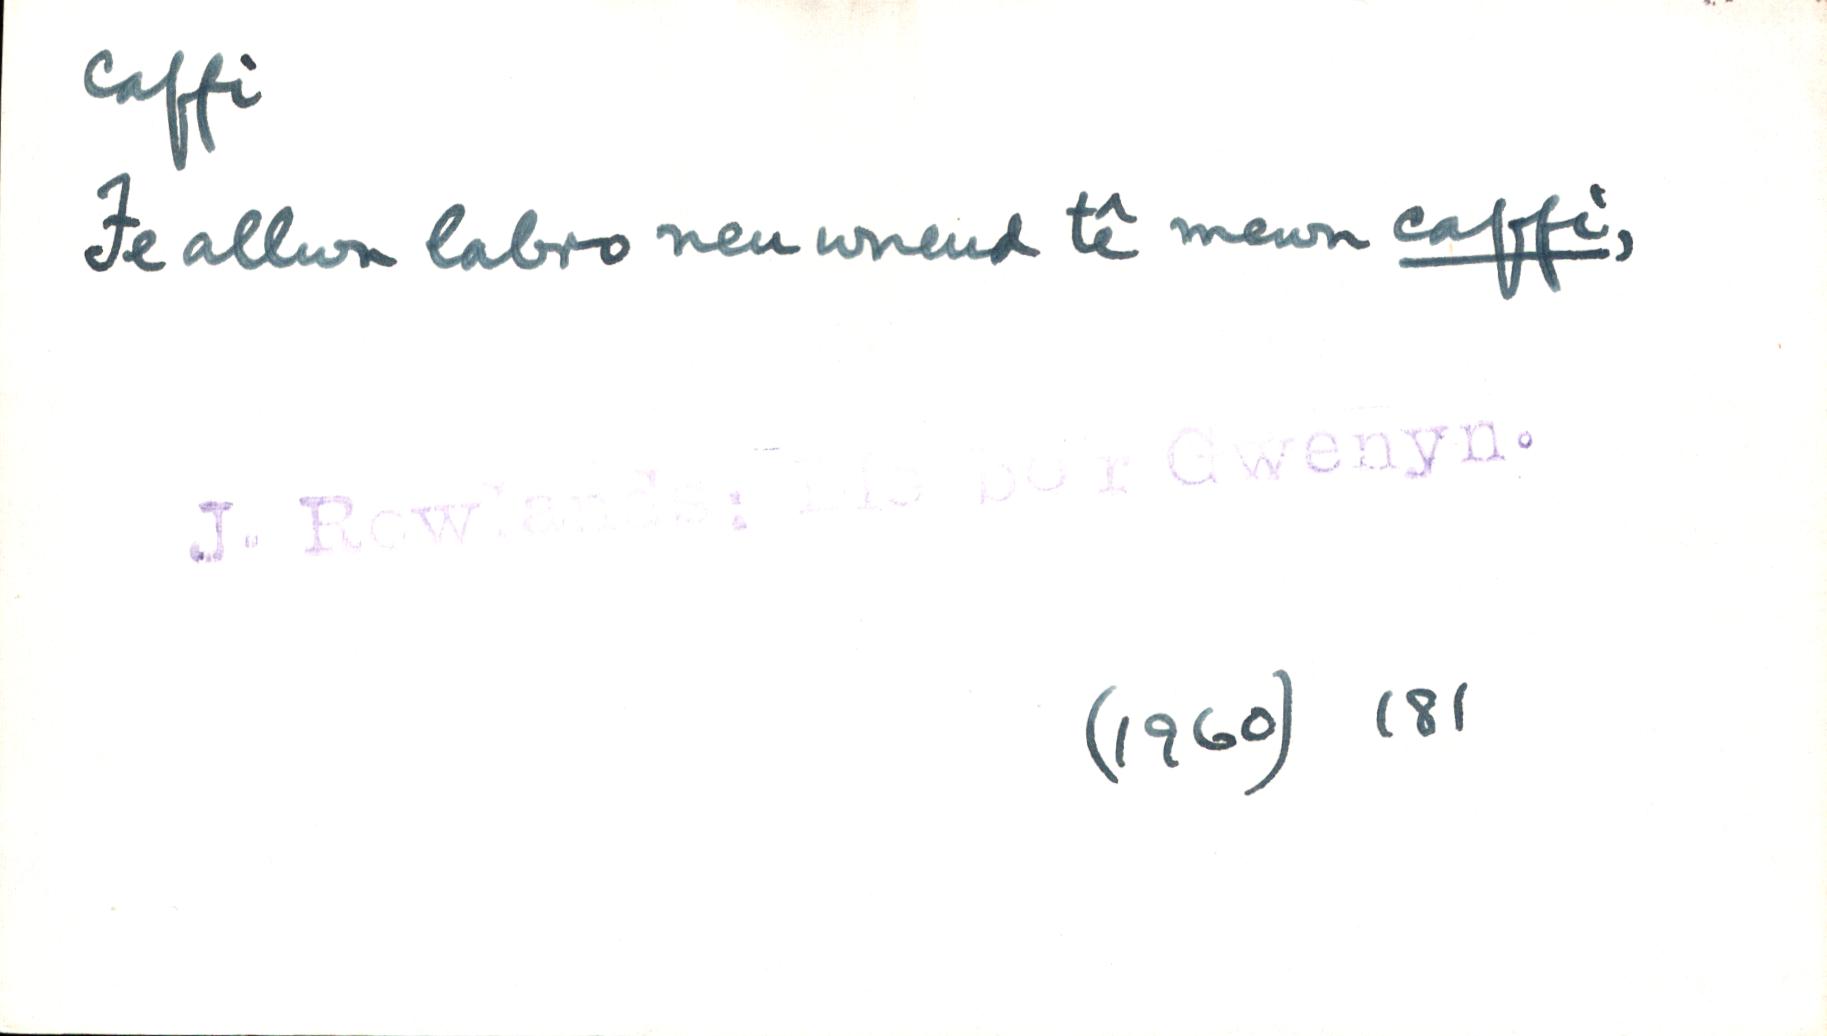 caffi
Fe allwn labro neu wneud tê mewn caffi,
J. Rowlands: Lle bo'r Gwenyn.
(1960) 181